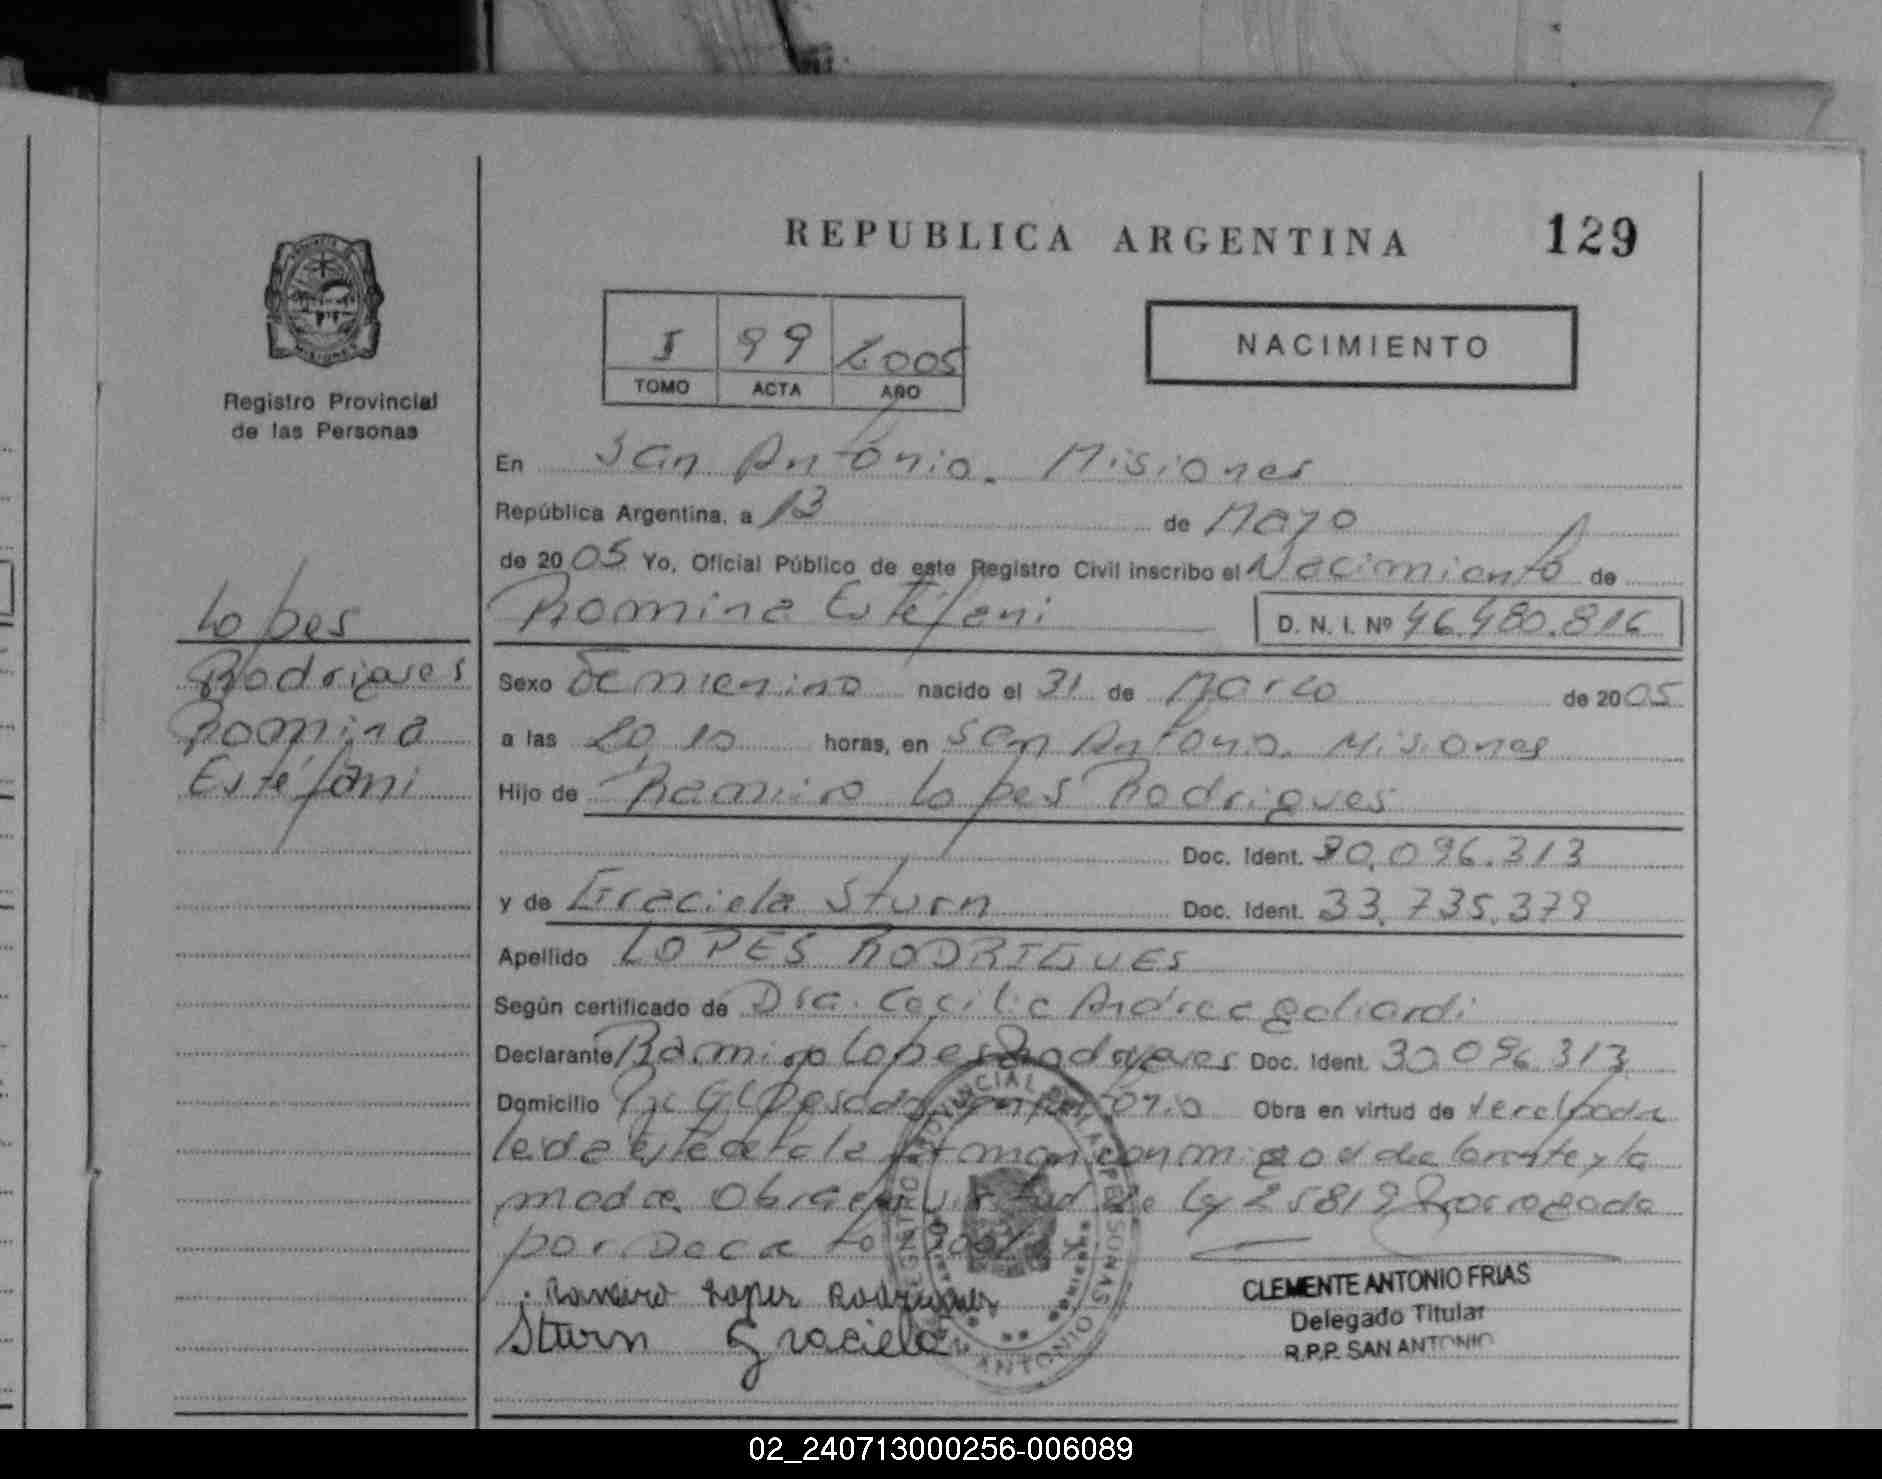 REPUBLICA ARGENTINA 129
I 99 2005
TOMO ACTA AÑO
NACIMIENTO
Registro Provincial
de las Personas
Lopes
Rodrigues
Romina
Estéfani
En San Antonio. Misiones
República Argentina, a 13 de Mayo
de 2005 Yo, Oficial Público de este Registro Civil inscribo el Nacimiento de
Romina Estéfani D. N. I. Nº 46.480.816
Sexo Femenino nacido el 31 de Marzo de 2005
a las 20,10 horas, en San Antonio. Misiones
Hijo de Ramiro Lopes Rodrigues
Doc. Ident. 30.096.313
y de Graciela Sturn Doc. Ident. 33.735.379
Apellido LOPES RODRIGUES
Según certificado de Dra. Cecilia Andrea galiardi
Declarante Ramiro Lopes Rodrigues Doc. Ident. 30.096.313
Domicilio San Antonio Obra en virtud de
leida este acta la firman conmigo el declarante y la
madre. Obra en virtud de ley 25819 Prorrogada
por Decreto
Ramiro Lopes Rodrigues
Sturn Graciela
CLEMENTE ANTONIO FRIAS
Delegado Titular
R.P.P. SAN ANTONIO
02_240713000256-006089